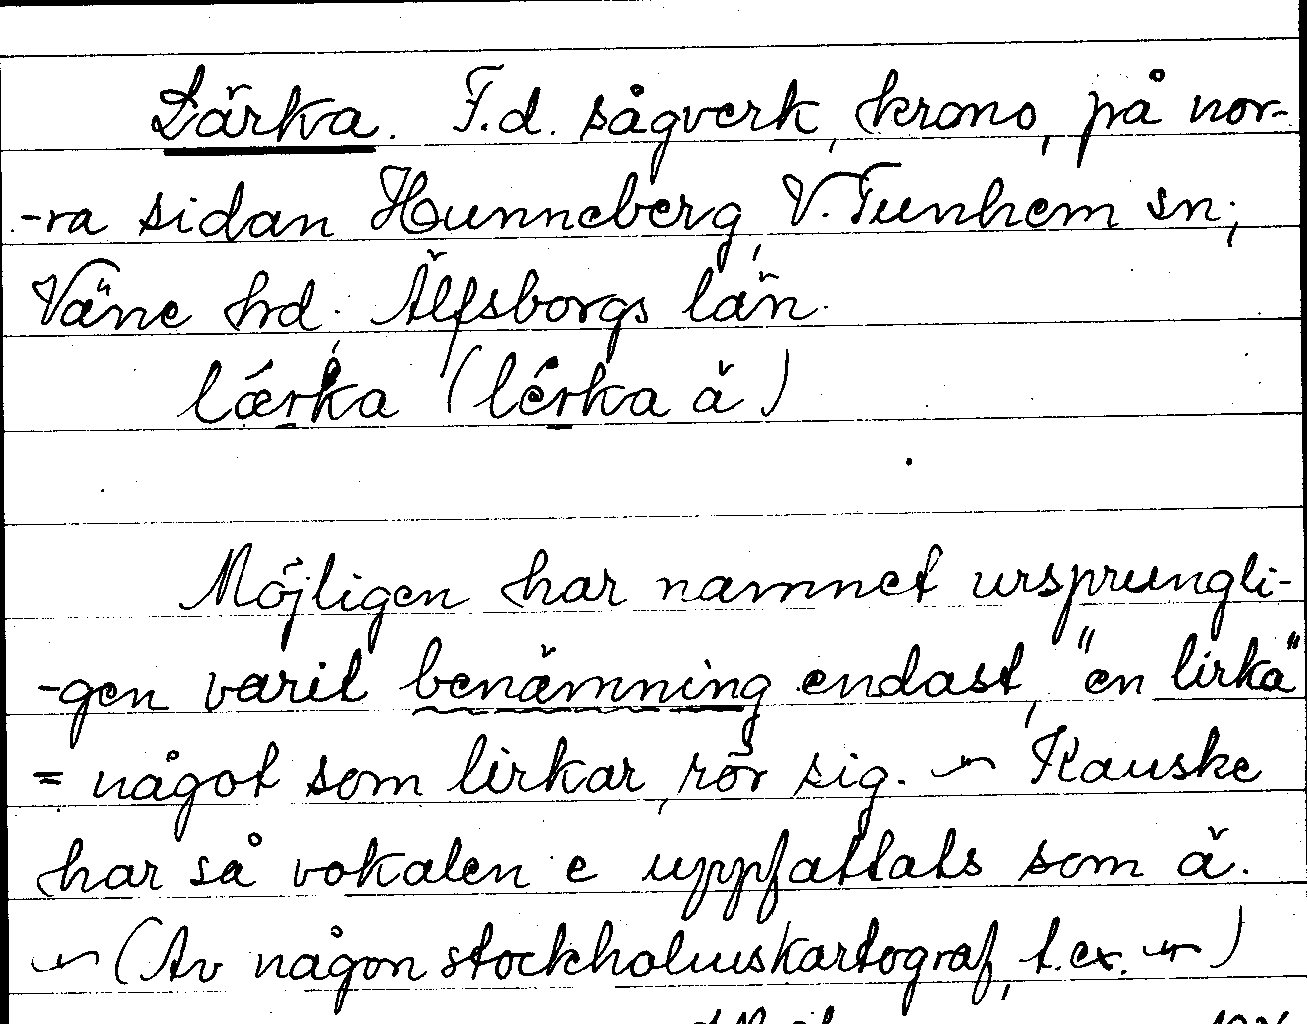 Lärka. F.d. sågverk, krono, på nor-
-ra sidan Hunneberg, V. Tunhem sn;
Väne hd. Älfsborgs län.
lǽrka (lérka ä)
Möjligen har namnet ursprungli-
-gen varit benämning endast, "en lirka"
= något som lirkar, rör sig. ~ Kanske
har så vokalen e uppfattats som ä.
~ (Av någon stockholmskartograf, t.ex. ~)